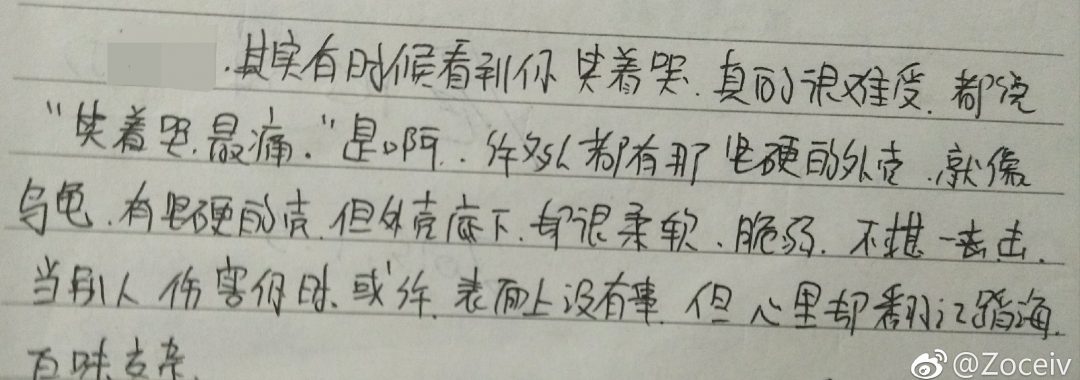 .其实有时候看到你笑着哭.真的很难受.都说
“笑着哭.最痛.”是啊..许多人都有那坚硬的外壳.就像
乌龟.有坚硬的壳.但外壳底下.却很柔软.脆弱.不堪一击.
当别人伤害你时.或许.表面上没有事.但心里却翻江蹈海.
百味支杂.
@Zoceiv